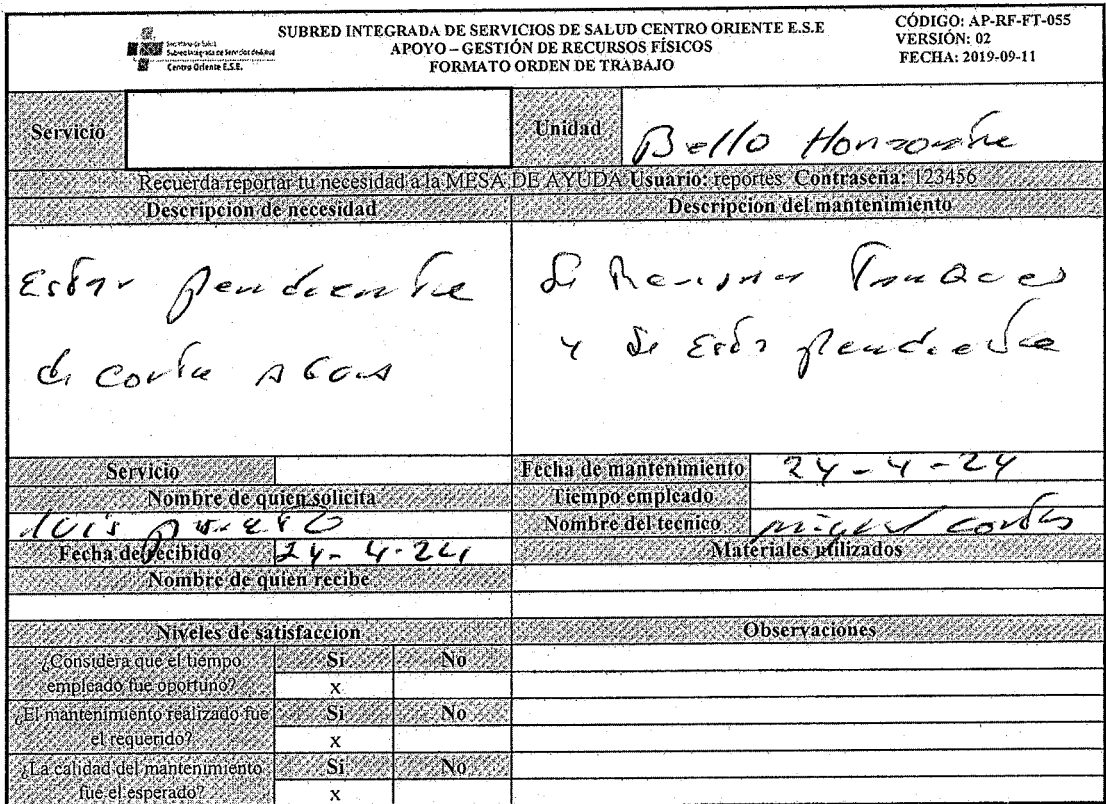 Secretaría de Salud
Subred Integrada de Servicios de Salud
Centro Oriente E.S.E.
SUBRED INTEGRADA DE SERVICIOS DE SALUD CENTRO ORIENTE E.S.E
APOYO – GESTIÓN DE RECURSOS FÍSICOS
FORMATO ORDEN DE TRABAJO
CÓDIGO: AP-RF-FT-055
VERSIÓN: 02
FECHA: 2019-09-11
Servicio
Unidad Bello Horizonte
Recuerda reportar tu necesidad a la MESA DE AYUDA Usuario: reportes Contraseña: 123456
Descripcion de necesidad
Estar pendiente
de corte Agua
Descripcion del mantenimiento
Se Tanques
y se Esta pendiente
Servicio
Nombre de quien solicita
Luis
Fecha de recibido 24-4-24
Nombre de quien recibe
Fecha de mantenimiento 24-4-24
Tiempo empleado
Nombre del tecnico miguel cortes
Materiales utilizados
Niveles de satisfaccion
Observaciones
¿Considera que el tiempo Si No
empleado fue oportuno? x
¿El mantenimiento realizado fue Si No
el requerido? x
¿La calidad del mantenimiento Si No
fue el esperado? x